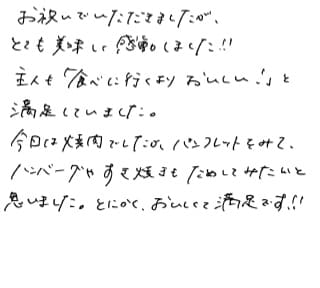 お祝いでいただきましたが、
とても美味しく感動しました!!
主人も「食べに行くより おいしい!」と
満足していました。
今回は焼肉でしたが、パンフレットをみて、
ハンバーグや すき焼きも ためしてみたいと
思いました。とにかく、おいしくて満足です!!